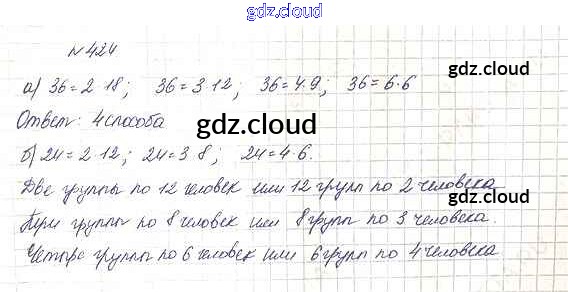 gdz.cloud
№ 424
а) 36=2·18; 36=3·12; 36=4·9; 36=6·6
gdz.cloud
Ответ: 4 способа
gdz.cloud
б) 24=2·12; 24=3·8; 24=4·6.
gdz.cloud
Две группы по 12 человек или 12 групп по 2 человека
Три группы по 8 человек или 8 групп по 3 человека.
Четыре группы по 6 человек или 6 групп по 4 человека
gdz.cloud